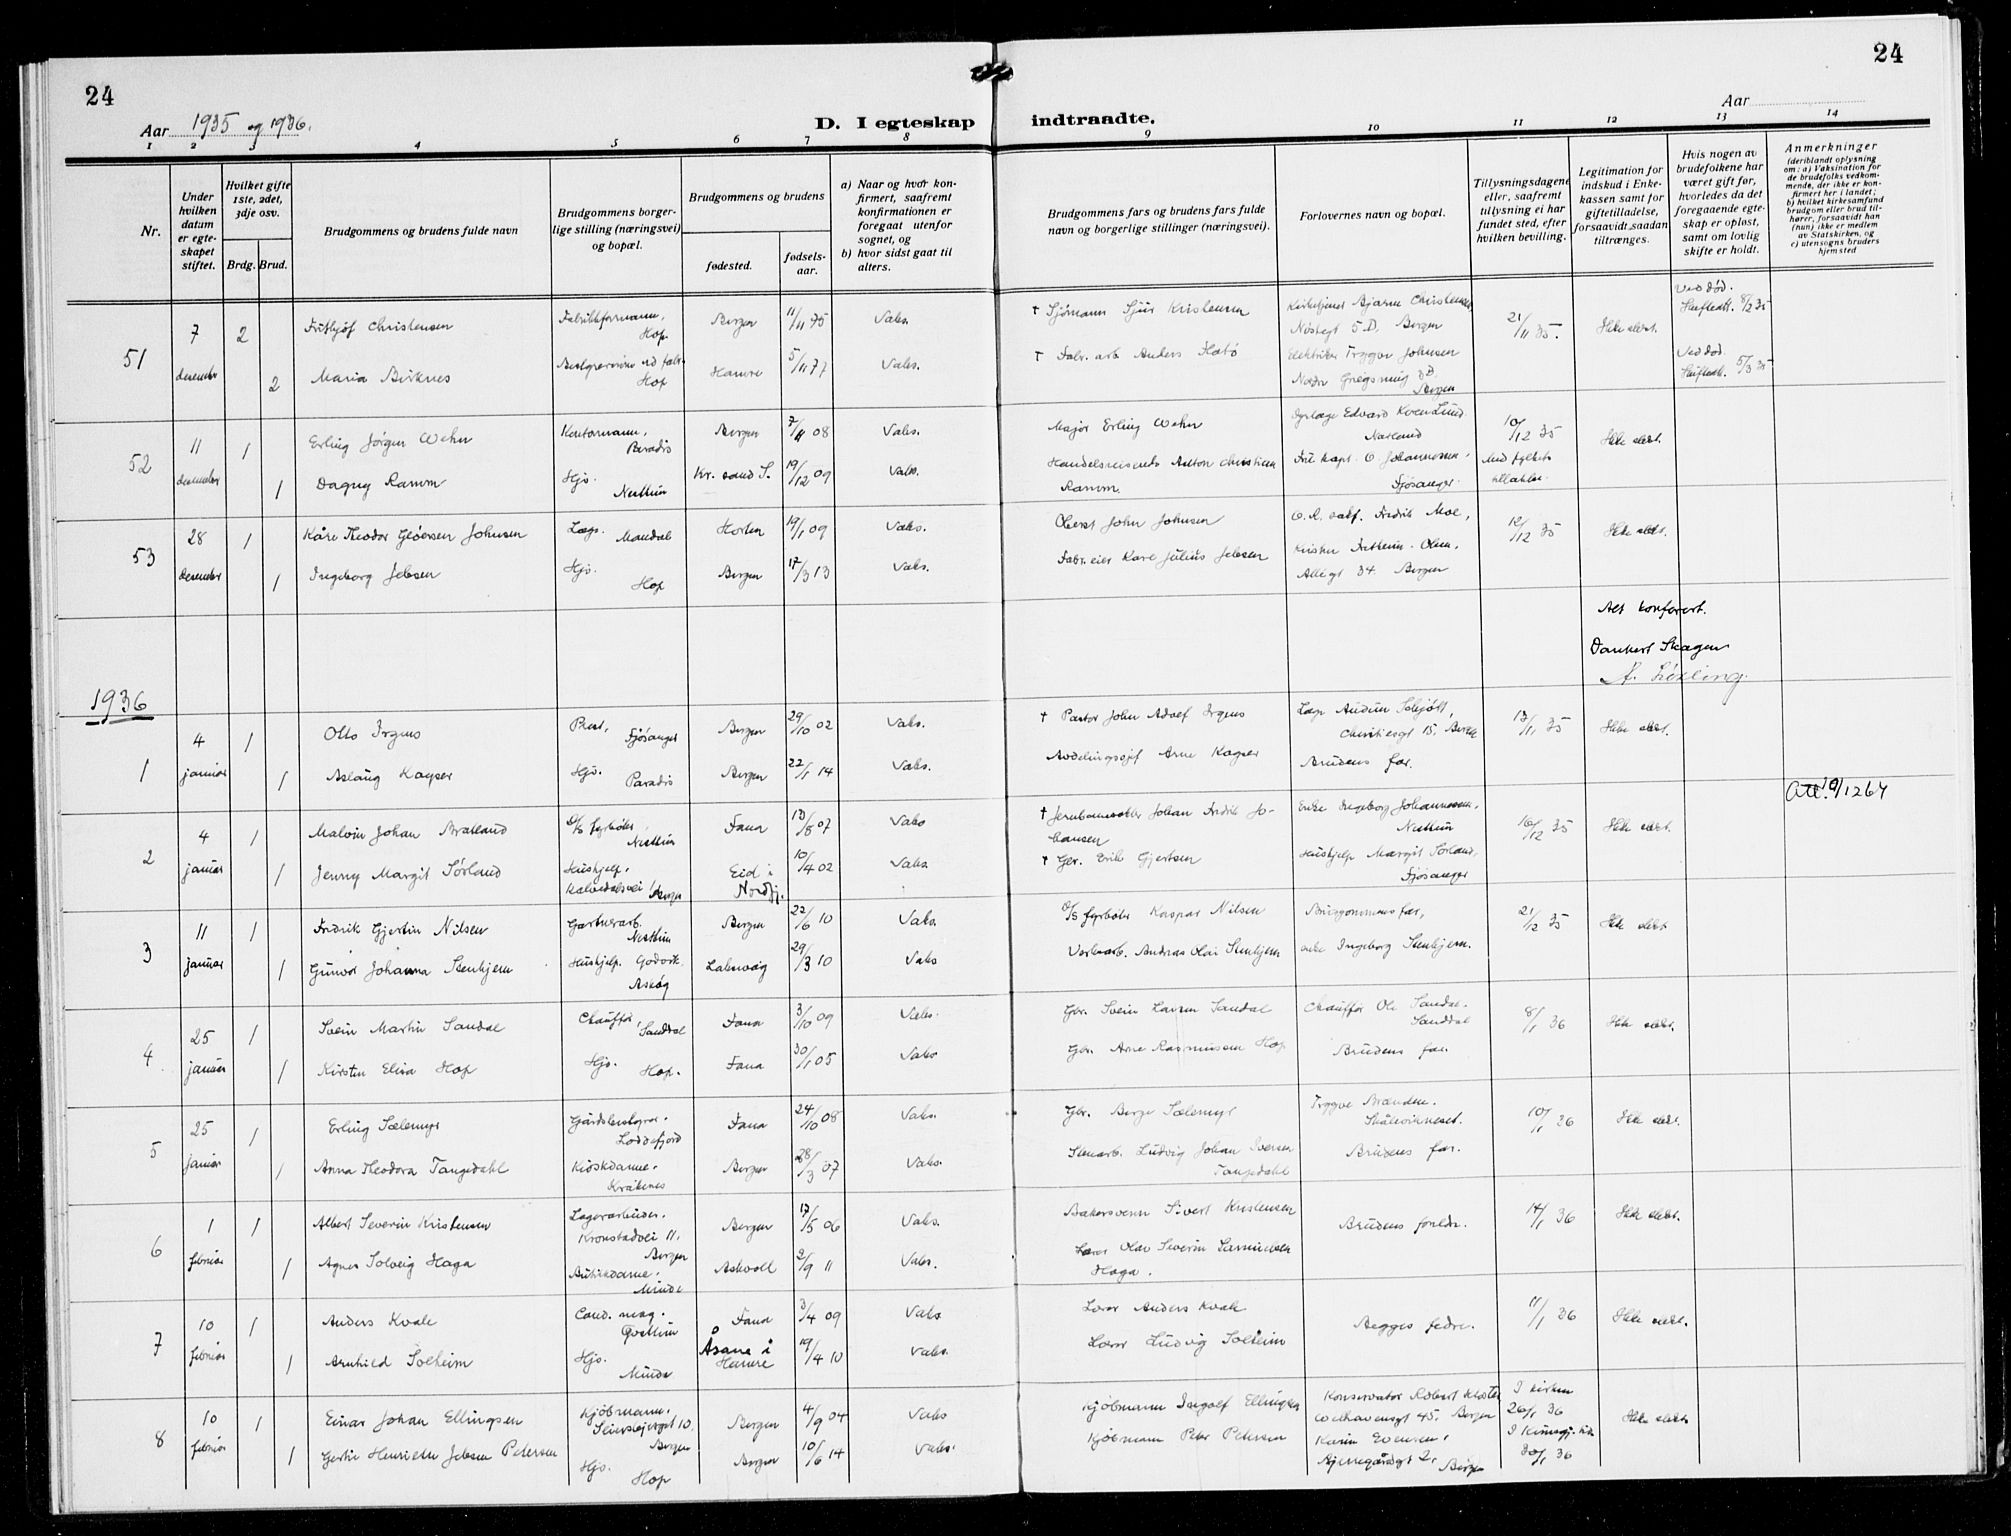 24
24
Aar 1935 og 1936.
D. I egteskap
indtraadte.
Aar
1 2 3 4 5 6 7 8 9 10 11 12 13 14
Nr.
Under hvilken datum er egteskapet stiftet.
Hvilket gifte 1ste, 2det, 3dje osv.
Brdg. Brud.
Brudgommens og brudens fulde navn
Brudgommens borgerlige stilling (næringsvei) og bopæl.
Brudgommens og brudens
fødested.
fødselsaar.
a) Naar og hvor konfirmert, saafremt konfirmationen er foregaat utenfor sognet, og
b) hvor sidst gaat til alters.
Brudgommens fars og brudens fars fulde navn og borgerlige stillinger (næringsvei).
Forlovernes navn og bopæl.
Tillysningsdagene eller, saafremt tillysning ei har fundet sted, efter hvilken bevilling.
Legitimation for indskud i Enkekassen samt for giftetilladelse, forsaavidt saadan tiltrænges.
Hvis nogen av brudefolkene har været gift før, hvorledes da det foregaaende egteskap er opløst, samt om lovlig skifte er holdt.
Anmerkninger
(deriblandt oplysning om: a) Vaksination for de brudefolks vedkommende, der ikke er konfirmert her i landet; b) hvilket kirkesamfund brudgom eller brud tilhører, forsaavidt han (hun) ikke er medlem av Statskirken, og c) utensogns bruders hjemsted
51 7 desember 2 Fritjof Christensen Fabrikkformann, Hop Bergen 11/11 75 Vaks. † Sjømann Sjur Kristensen Kirketjener Bjarne Christensen, Nøstegt 5 D. Bergen 21/11 35. Ikke sl&#230;kt. Ved død. Skiftedt. 8/2 35
2 Maria Birknes Hop Hamre 5/11 77 Vaks. † Fabr. arb. Anders Elektriker Trygve Johnsen Nedre Griegsmug 3 B. Bergen Ved død. Skiftedt. 5/3 35
52 11 desember 1 Erling Jørgen Wehn Kontormann, Paradis Bergen 08 Vaks. Major Erling Wehn Dyrlæge Edvard Lund Nesttun 10/12 35 Ikke slekt.
1 Dagny Ramm Hjs. Nesttun Kr. sand S. 19/12 09 Vaks. Handelsreisende Anton Christian Ramm. Johannessen, Fjøsanger. Med fylkets tillatelse.
53 28 desember 1 Kåre Theodor Gløersen Johnsen Læge. Mandal Horten 19/1 09 Vaks. Oberst John Johnsen O.R. sakf. Fredrik Moe, 12/12 35 Ikke slekt.
1 Ingeborg Jebsen Hjs. Hop Bergen 17/3 13 Vaks. Fabr. eier Kare Julius Jebsen Allégt 34. Bergen
Alt konferert.
Dankert Skagen
1936
1 4 januar 1 Otto Irgens Prest, Fjøsanger Bergen 29/10 02 Vaks. † Pastor John Adolf Irgens Læge Audun Schjøtt, Christiesgt 15. Bergen 13/1 35 Ikke slekt.
1 Aslaug Kayser Hjs. Paradis Bergen 22/1 14 Vaks. Avdelingssjef Arne Kayser Brudens far.
Att. 9/12 64
2 4 januar 1 Malvin Johan Bratlund D/S fyrbøter, Nesttun Fana 13/8 07 Vaks † Johan Fredrik Johansen Enke Ingeborg Johannessen, Nesttun 16/12 35 Ikke slekt.
1 Jenny Margit Sørland Hushjelp. Kalvedalsvei Bergen Eid i Nordfj. 10/4 02 Vaks. † Gbr. Erik Gjertsen Hushjelp Margit Sørland, Fjøsanger
3 11 januar 1 Fredrik Gjertin Nilsen Gartnerarb. Nesttun Bergen 22/6 10 Vaks. D/S fyrbøter Kaspar Nilsen Brudgommens far, 21/12 35 Ikke slekt
1 Gunvor Johanna Stenhjem Hushjelp. Godvik. Askøy Laksevåg 29/3 10 Vaks Andreas Olai Stenhjem enke Ingeborg Stenhjem.
4 25 januar 1 Svein Martin Sandal Chauffør, Sanddal Fana 3/10 09 Vaks. Gbr. Svein Larsen Sandal Chauffør Ole Sandal. Sanddal 8/1 36 Ikke slekt.
1 Kirsten Elisa Hop Hjs. Hop. Fana 30/1 05 Vaks Gbr. Arne Rasmussen Hop Brudens far.
5 25 januar 1 Erling Sælemyr Gårdsbestyrer. Loddefjord Fana 24/10 08 Vaks. Gbr. Berge Sælemyr Trygve Brandsen. Skålevikneset. 10/1 36 Ikke slekt.
1 Anna Theodora Tangedahl Kioskdame. Kråkenes Bergen 28/3 07 Vaks. Stenarb. Ludvig Johan Iversen Tangedahl Brudens far.
6 1 februar 1 Albert Severin Kristensen Lagerarbeider. Kronstadvei 11. Bergen Bergen 17/5 06 Vaks. Bakersvenn Sivert Kristensen Brudens foreldre. 14/1 36 Ikke slekt.
1 Agnes Solveig Haga Butikkdame. Minde Askvoll 2/9 11 Vaks. Lærer Olav Severin Samuelsen Haga.
7 10 februar 1 Anders Kvale Cand. mag. Fana 3/4 09 Vaks Lærer Anders Kvale Begges fedre. 11/1 36 Ikke slekt.
1 Arnhild Solheim Hjs. Minde Åsane i Hamre 19/4 10 Vaks. Lærer Ludvig Solheim
8 10 februar 1 Einar Johan Ellingsen Kjøbmann. 10. Bergen Bergen 4/9 04 Vaks Kjøbmann Ingolf Ellingsen Konservator Robert Kloster Welhavensgt 45. Bergen I kirken 26/1 36 Ikke slekt
1 Gertie Henriette Jebsen Petersen Hjs. Hop Bergen 10/6 14 Vaks. Kjøbmann Peter Petersen Karin Evensen, 2, Bergen 36